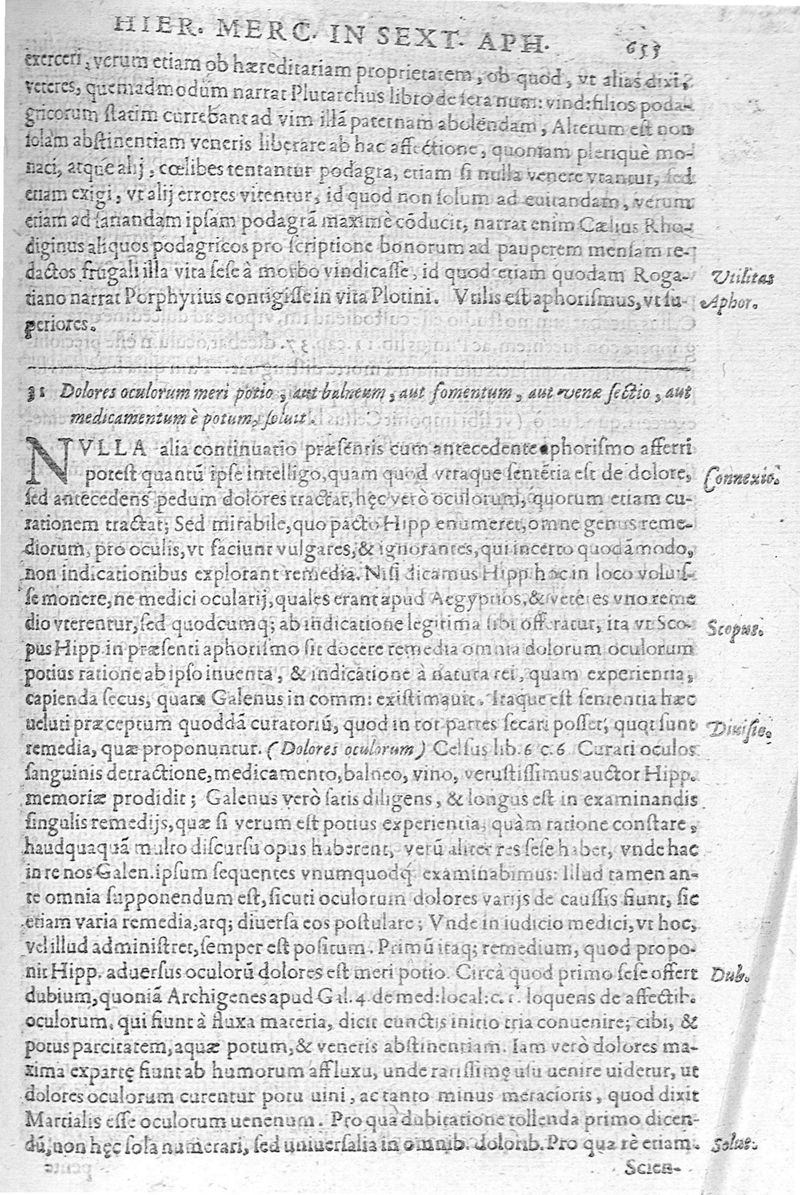 HIER. MERC. IN SEXT. APH. 653
exerceri, verum etiam ob hæreditariam proprietatem, ob quod, vt alias dixi,
veteres, quemadmodum narrat Plutarchus libro de sera num: vind: filios poda-
gricorum statim currebant ad vim illã paternam abolendam, Alterum est non
solam abstinentiam veneris liberare ab hac affectione, quoniam plerique mo-
naci, atque alij, cœlibes tentantur podagra, etiam si nulla venere vtantur, sed
etiam exigi, vt alij errores vitentur, id quod non solum ad euitandam, verum
etiam ad sanandam ipsam podagrã maximè cõducit, narrat enim Cælius Rho-
diginus aliquos podagricos pro scriptione bonorum ad pauperem mensam re-
dactos frugali illa vita sese à morbo vindicasse, id quod etiam quodam Roga- Vtilitas
tiano narrat Porphyrius contigisse in vita Plotini. Vtilis est aphorismus, vt su- Aphor.
periores.
31 Dolores oculorum meri potio, aut balneum, aut fomentum, aut venæ sectio, aut
medicamentum è potum, soluit.
NVLLA alia continuatio præsentis cum antecedente aphorismo afferri
potest quantũ ipse intelligo, quam quod vtraque sentẽtia est de dolore, Connexio.
sed antecedens pedum dolores tractat, hęc verò oculorum, quorum etiam cu-
rationem tractat; Sed mirabile, quo pacto Hipp enumeret, omne genus reme-
diorum, pro oculis, vt faciunt vulgares, & ignorantes, qui incerto quodã modo,
non indicationibus explorant remedia. Nisi dicamus Hipp hoc in loco voluis-
se monere, ne medici ocularij, quales erant apud Aegyptios, & veteres vno reme
dio vterentur, sed quodcumq; ab indicatione legitima sibi offeratur, ita vt Sco- Scopus.
pus Hipp in præsenti aphorismo sit docere remedia omnia dolorum oculorum
potius ratione ab ipso inuenta, & indicatione à natura rei, quam experientia,
capienda secus, quam Galenus in comm: existimauit. Itaque est sententia hæc
ueluti præceptum quoddã curatoriũ, quod in tot partes secari posset, quot sunt Diuisio.
remedia, quæ proponuntur. (Dolores oculorum) Celsus lib. 6 c. 6 Curari oculos
sanguinis detractione, medicamento, balneo, vino, vetustissimus auctor Hipp.
memoriæ prodidit; Galenus verò satis diligens, & longus est in examinandis
singulis remedijs, quæ si verum est potius experientia, quàm ratione constare,
haudquaquã multo discursu opus haberent, verũ aliter res sese habet, vnde hac
in re nos Galen. ipsum sequentes vnumquodq́ examinabimus: Illud tamen an-
te omnia supponendum est, sicuti oculorum dolores varijs de caussis fiunt, sic
etiam varia remedia, arq; diuersa eos postulare; Vnde in iudicio medici, vt hoc,
vel illud administret, semper est positum. Primũ itaq; remedium, quod propo-
nit Hipp. aduersus oculorũ dolores est meri potio. Circà quod primo sese offert Dub.
dubium, quoniã Archigenes apud Gal. 4 de med: local: c. 1. loquens de affectib.
oculorum, qui fiunt à fluxa materia, dicit cunctis initio tria conuenire; cibi, &
potus parcitatem, aquæ potum, & veneris abstinentiam. Iam verò dolores ma-
xima expartę fiunt ab humorum affluxu, unde rarissimę usu uenire uidetur, ut
dolores oculorum curentur potu uini, ac tanto minus meracioris, quod dixit
Martialis esse oculorum uenenum. Pro qua dubitatione tollenda primo dicen-
dũ, non hęc sola numerari, sed uniuersalia in omnib. dolorib. Pro qua rè etiam. Solut.
Scien-